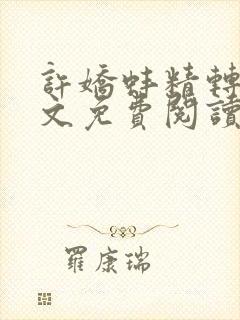 許嬌蚌精轉
文免費閱讀
羅康瑞